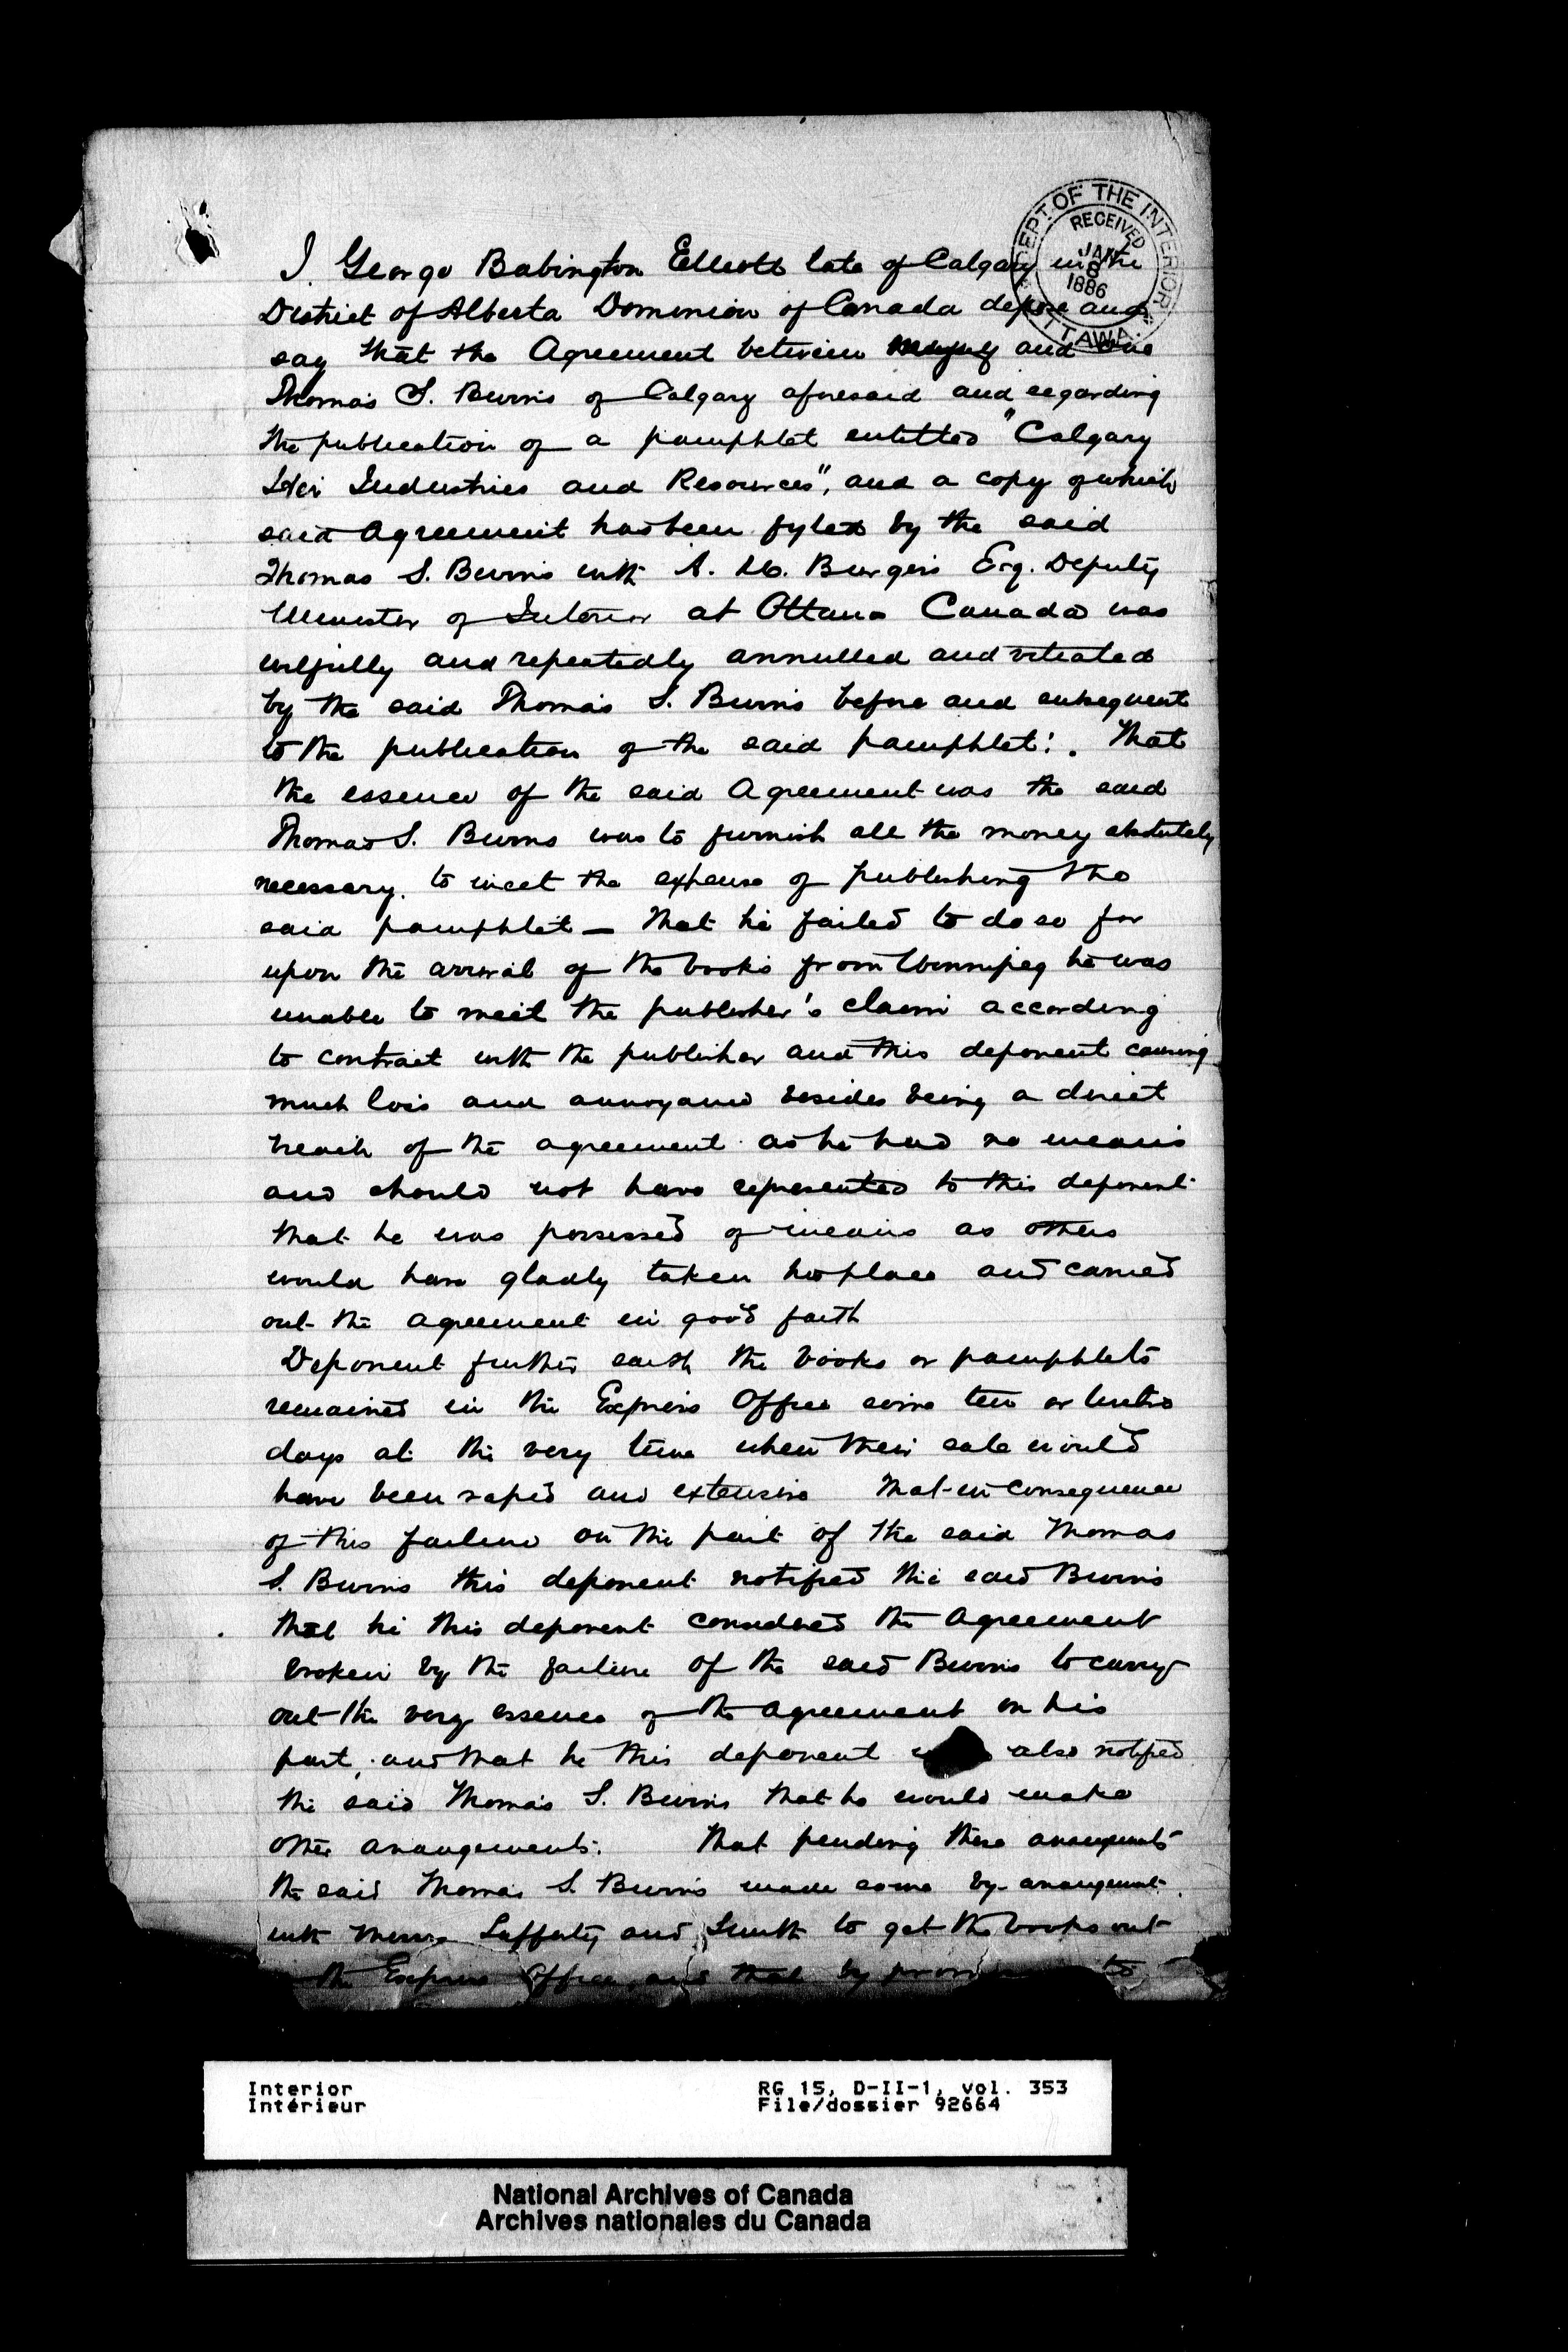 DEPT. OF THE INTERIOR
RECEIVED
JAN
8
1886
OTTAWA.
I George Babington Elliott late of Calgary in the
District of Alberta Dominion of Canada depose and
say that the Agreement between myself and one
Thomas S. Burns of Calgary aforesaid and regarding
the publication of a pamphlet entitled "Calgary
Her Industries and Resources", and a copy of which
said Agreement has been fyled by the said
Thomas S. Burns with A. M. Burgess Esq. Deputy
Minister of Interior at Ottawa Canada was
wilfully and repeatedly annulled and vitiated
by the said Thomas S. Burns before and subsequent
to the publication of the said pamphlet:. That
the essence of the said Agreement was the said
Thomas S. Burns was to furnish all the money absolutely
necessary. to meet the expense of publishing the
said pamphlet — That he failed to do so for
upon the arrival of the books from Winnipeg he was
unable to meet the publisher's claim according
to contract with the publisher and this deponent causing
much loss and annoyance besides being a direct
breach of the agreement as he had no means
and should not have represented to this deponent
that he was possessed of means as others
would have gladly taken his place and carried
out the agreement in good faith
Deponent further saith the books or pamphlets
remained in the Express Office some ten or twelve
days at the very time when their sale would
have been rapid and extensive That in consequence
of this failure on the part of the said Thomas
S. Burns this deponent notified the said Burns
that he this deponent considered the Agreement
broken by the failure of the said Burns to carry
out the very essence of the agreement on his
part, and that he this deponent also notified
the said Thomas S. Burns that he would make
other arrangements. That pending these arrangements
the said Thomas S. Burns made some by-arrangement
with Messrs Lafferty and Smith to get the books out
the Express Office and that by to
Interior
Intérieur
RG 15, D-II-1, vol. 353
File/dossier 92664
National Archives of Canada
Archives nationales du Canada